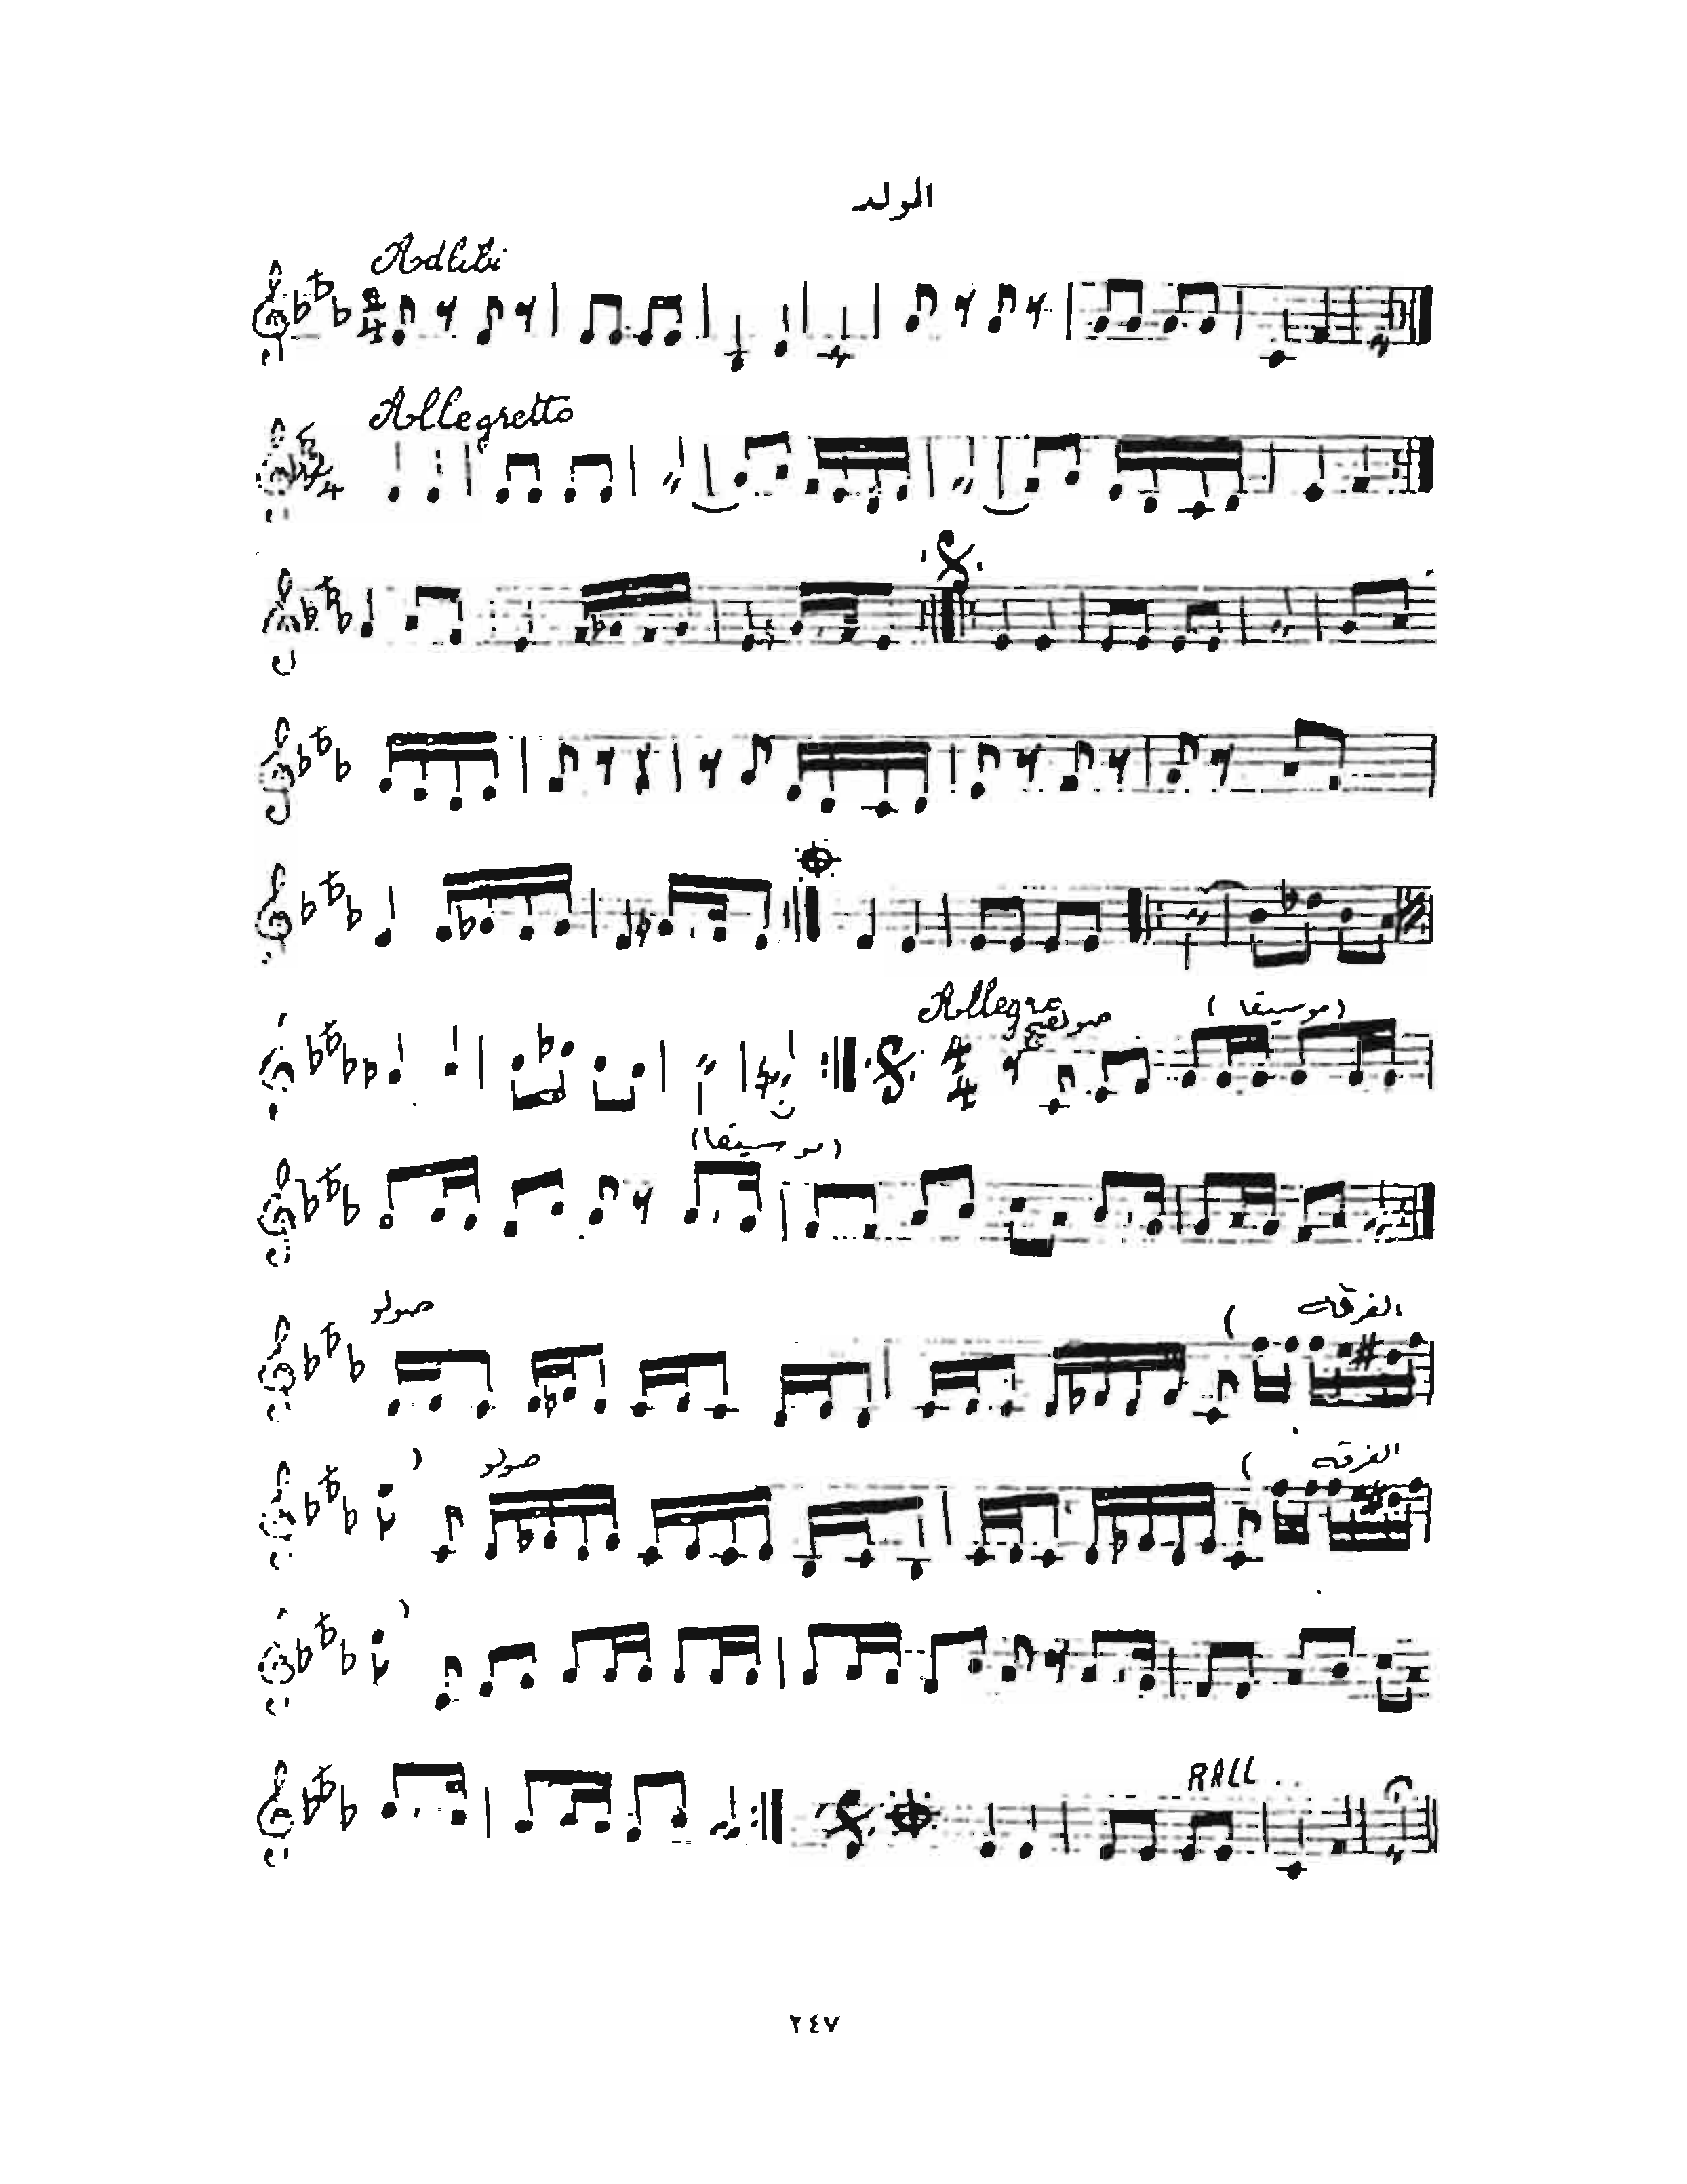 المولد
Adlibi
Allegretto
Allegro
صولفيج
(موسيقا)
(موسيقا)
صولو
الفرقه
صولو
الفرقه
RALL ..
٢٤٧